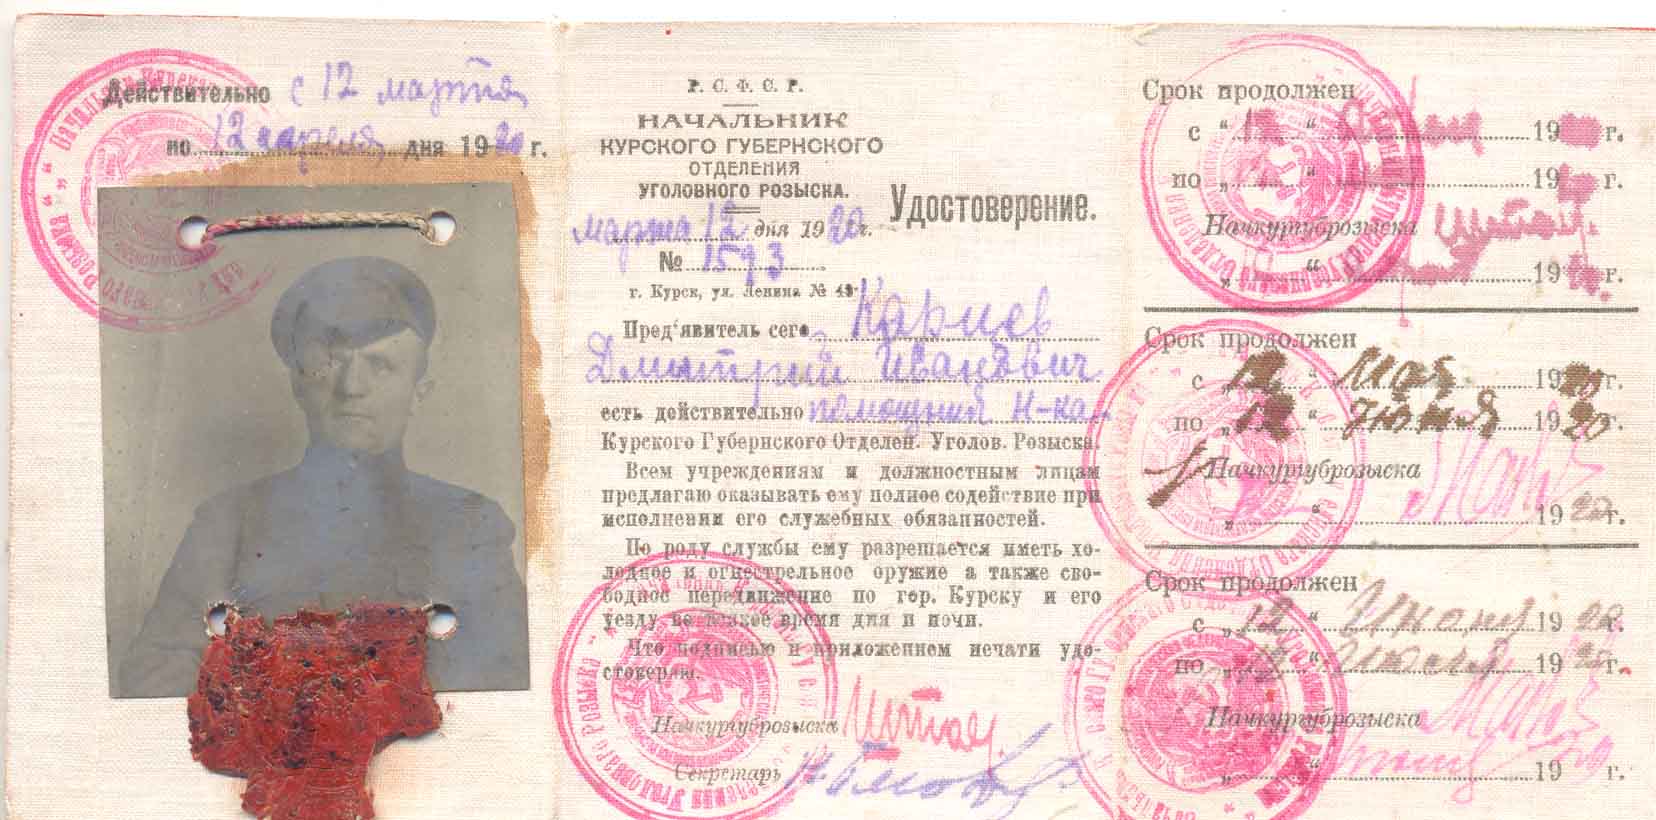 Действительно с 12 марта
по 12 апреля дня 1920 г.
Р. С. Ф. С. Р.
НАЧАЛЬНИК
КУРСКОГО ГУБЕРНСКОГО
ОТДЕЛЕНИЯ
УГОЛОВНОГО РОЗЫСКА.
марта 12 дня 1920 г.
№ 1593
г. Курск, ул. Ленина № 49
Удостоверение.
Пред'явитель сего Карцев
Дмитрий Иванович
есть действительно помощник Н-ка
Курского Губернского Отделен. Уголов. Розыска.
Всем учреждениям и должностным лицам
предлагаю оказывать ему полное содействие при
исполнении его служебных обязанностей.
По роду службы ему разрешается иметь хо-
лодное и огнестрельное оружие а также сво-
бодное передвижение по гор. Курску и его
уезду во всякое время дня и ночи.
Что подписью и приложением печати удо-
стоверяю.
Начкургуброзыска
Секретарь
Срок продолжен
с „ 12 “ 19 г.
по „ “ 19 г.
Начкургуброзыска
„ “ 19 г.
Срок продолжен
с „ 12 “ Мая 1920 г.
по „ 12 “ Июня 1920 г.
Начкургуброзыска
„ “ 1920 г.
Срок продолжен
с „ 12 “ Июня 1920 г.
по „ 12 “ Июля 1920 г.
Начкургуброзыска
„ “ 1920 г.